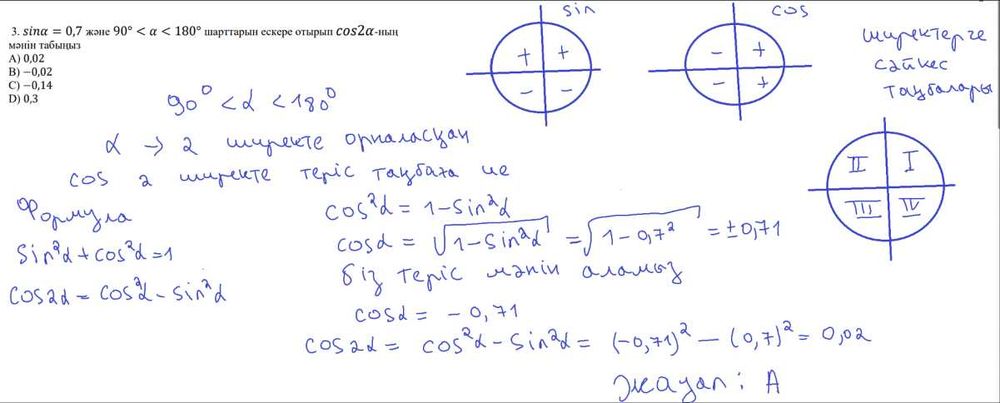 3. sinα = 0,7 және 90° < α < 180° шарттарын ескере отырып cos2α-ның
мәнін табыңыз
A) 0,02
B) −0,02
C) −0,14
D) 0,3
sin
+ +
− −
cos
− +
− +
ширектерге
сәйкес
таңбалары
II I
III IV
90° < α < 180°
α → 2 ширекте орналасқан
cos 2 ширекте теріс таңбаға ие
Формула
sin²α + cos²α = 1
cos2α = cos²α − sin²α
cos²α = 1 − sin²α
cosα = √(1 − sin²α) = √(1 − 0,7²) = ±0,71
біз теріс мәнін аламыз
cosα = −0,71
cos2α = cos²α − sin²α = (−0,71)² − (0,7)² = 0,02
Жауап: A